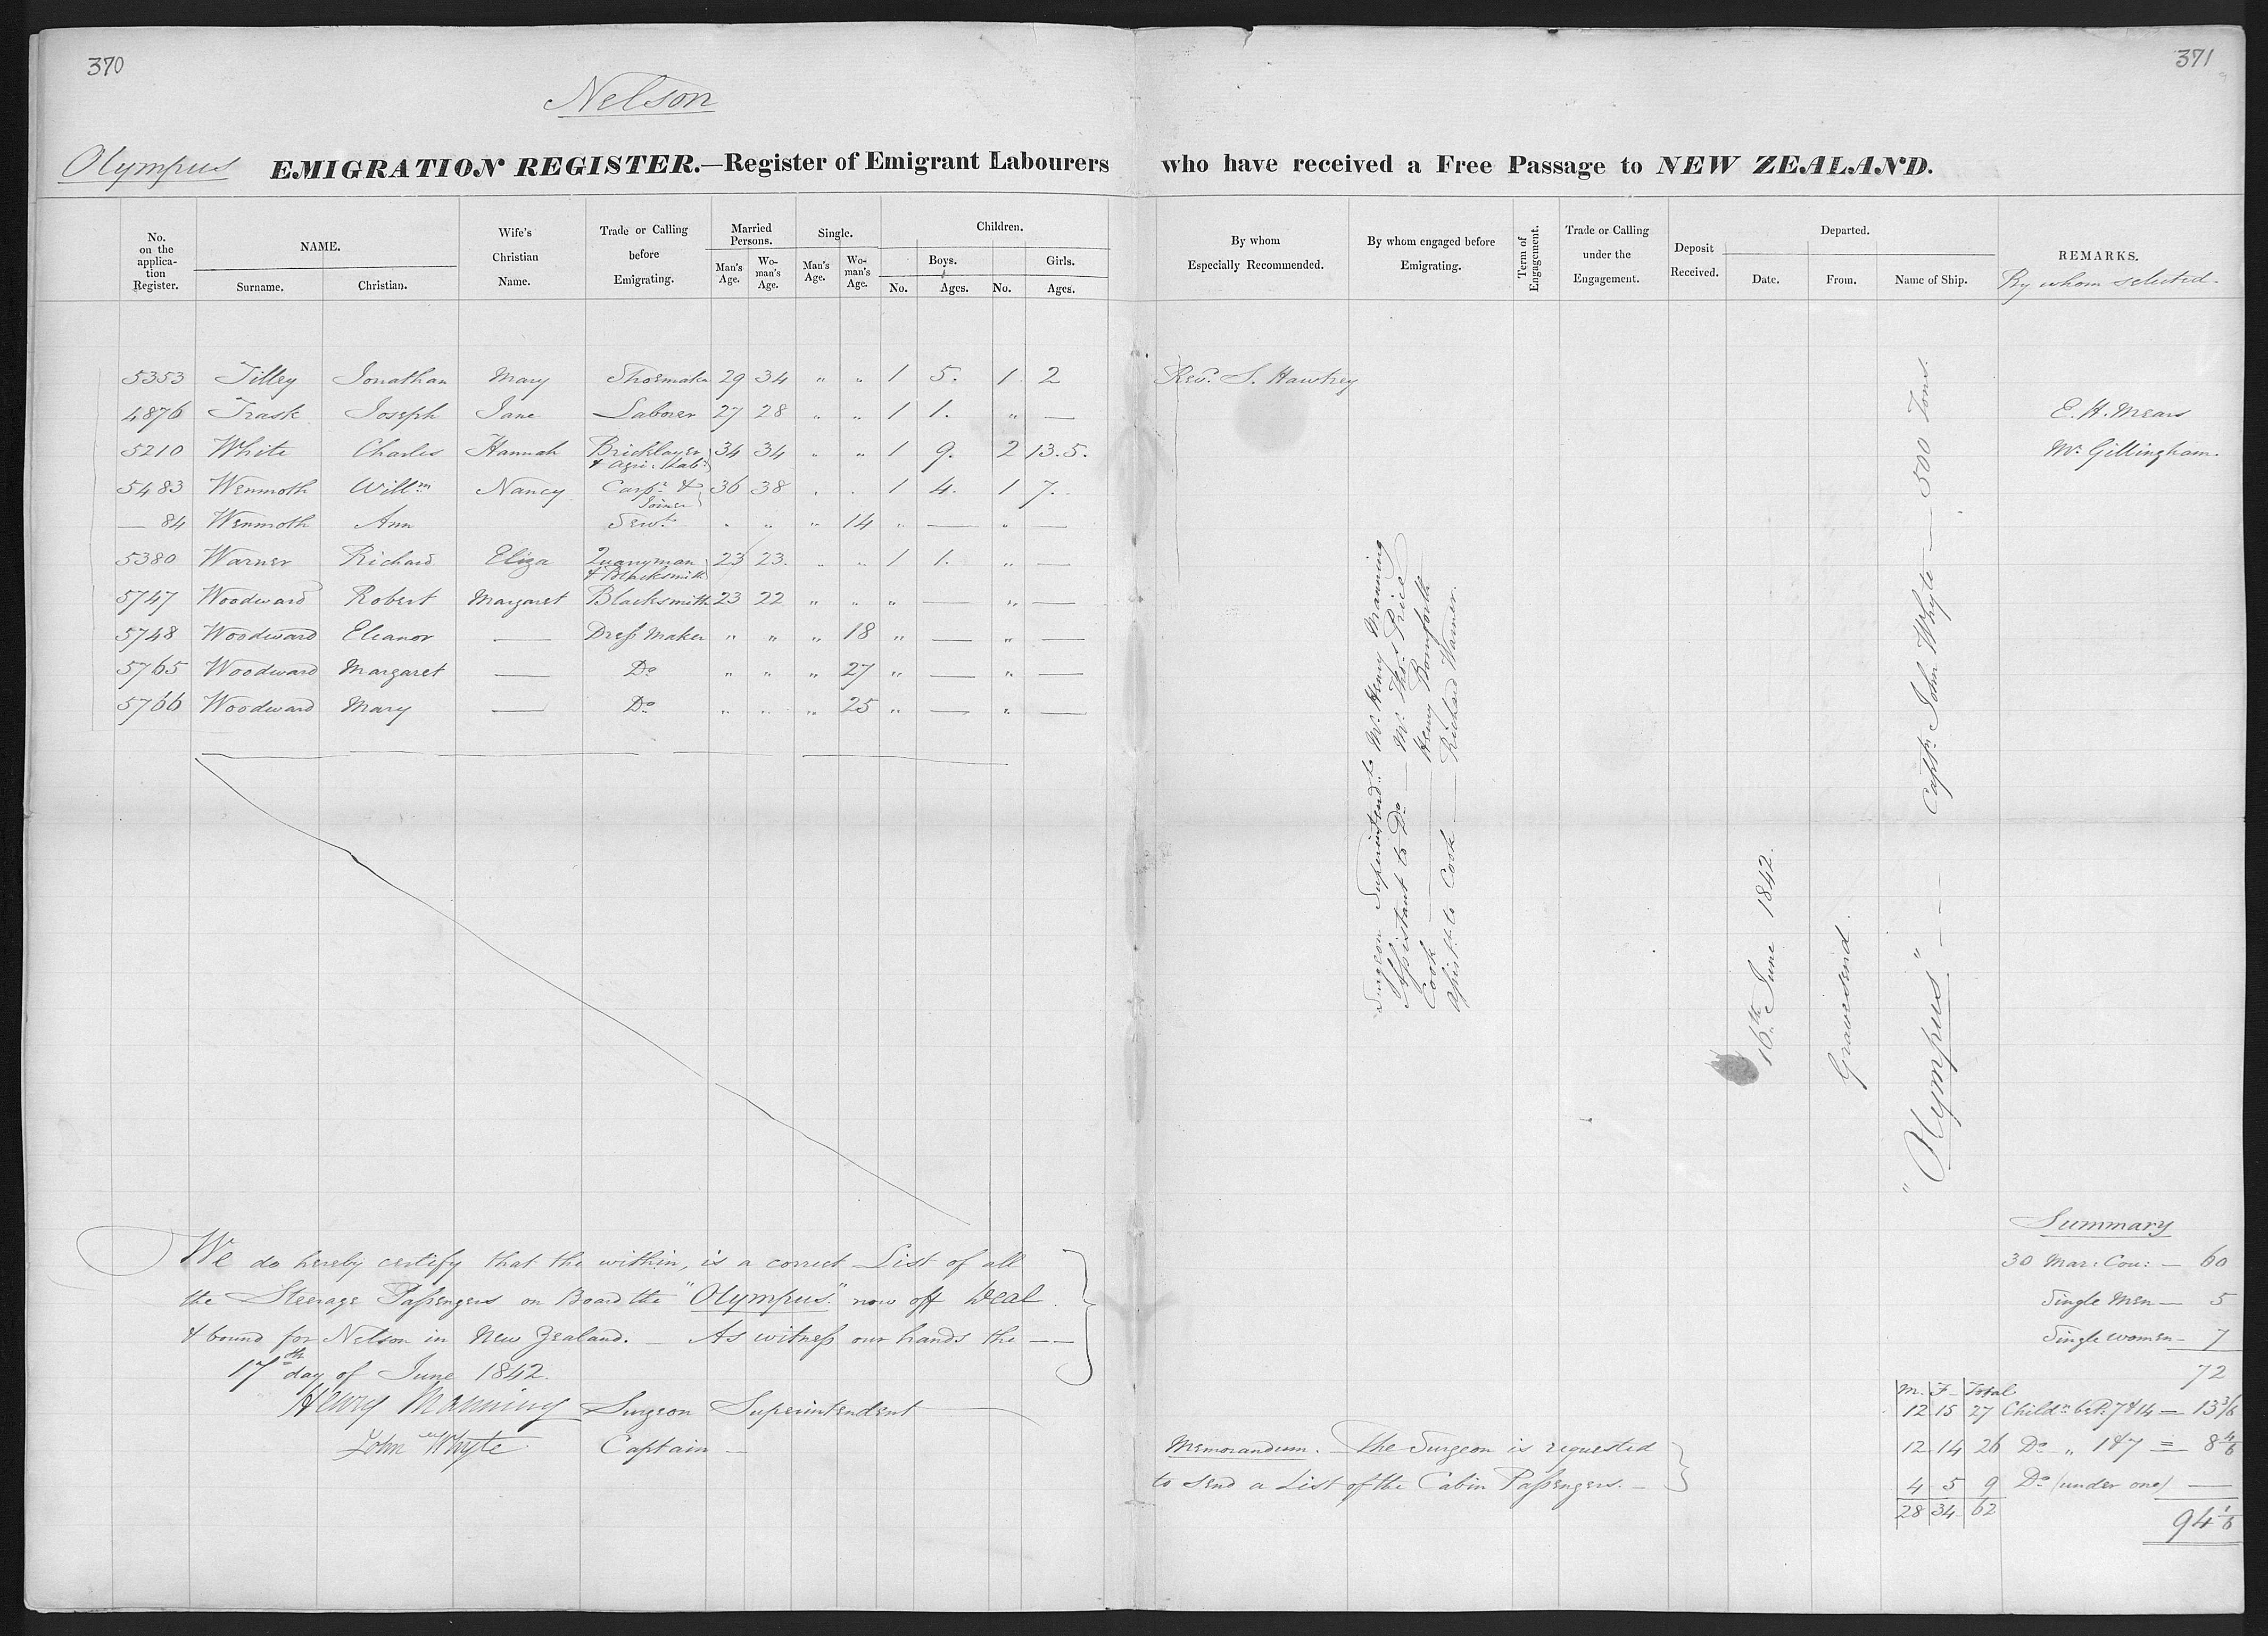 370
371
Nelson
Olympus EMIGRATION REGISTER.—Register of Emigrant Labourers who have received a Free Passage to NEW ZEALAND.
No. on the applica- tion Register.
NAME.
Surname. Christian.
Wife's Christian Name.
Trade or Calling before Emigrating.
Married Persons.
Man's Age. Wo- man's Age.
Single.
Man's Age. Wo- man's Age.
Children.
Boys. Girls.
No. Ages. No. Ages.
By whom Especially Recommended.
By whom engaged before Emigrating.
Term of Engagement.
Trade or Calling under the Engagement.
Deposit Received.
Departed.
Date. From. Name of Ship.
REMARKS.
By whom selected.
5353 Tilley Jonathan Mary Shoemaker 29 34 " " 1 5. 1 2 Revd. S. Hawtrey
4876 Trask Joseph Jane Laborer 27 28 " " 1 1. " — E. H. Mears
5210 White Charles Hannah Bricklayer & Agri: Lab: 34 34 " " 1 9. 2 13.5. Mr. Gillingham.
5483 Wenmoth Willm Nancy Carpr. & Joiner 36 38 " " 1 4. 1 7.
— 84 Wenmoth Ann Servt. " " " 14 " — " —
5380 Warner Richard Eliza Quarryman & Blacksmith 23 23. " " 1 1. " —
5747 Woodward Robert Margaret Blacksmith 23 22 " " " — " —
5748 Woodward Eleanor — Dress Maker " " " 18 " — " —
5765 Woodward Margaret — Do " " " 27 " — " —
5766 Woodward Mary — Do " " " 25 " — " —
Surgeon Superintendt. Mr. Henry Manning
Assistant to Do — Mr. Thos. Price
Cook — Henry Bomforth
Assist. to Cook — Richard Warner.
16th June 1842.
Gravesend.
"Olympus" — — Captn. John Whyte — 500 Tons.
We do hereby certify that the within, is a correct List of all
the Steerage Passengers on Board the "Olympus" now off Deal
& bound for Nelson in New Zealand. — As witness our hands the — —
17th day of June 1842.
Henry Manning Surgeon Superintendent
John Whyte Captain —
Memorandum. — The Surgeon is requested
to send a List of the Cabin Passengers. —
Summary
30 Mar: Cou: — 60
Single Men — 5
Single women — 7
72
M. F. Total
12 15 27 Childn. bet. 7 & 14 = 13 3/6
12 14 26 Do " 1 & 7 = 8 4/6
4 5 9 Do (under one) —
28 34 62
94 1/6